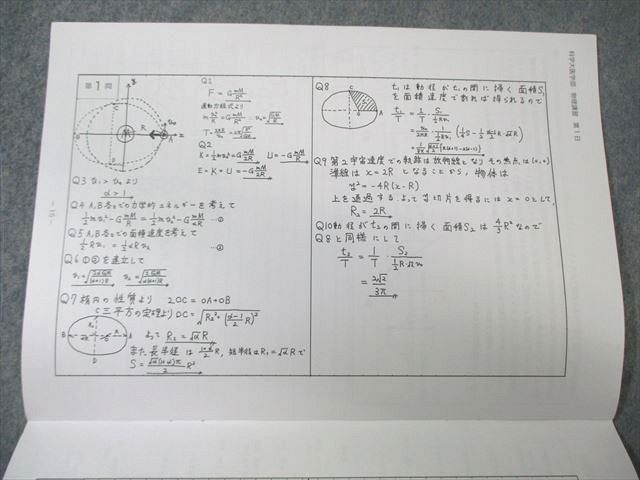 科学大医学部 物理講習 第1日
第1問
Q1
F = G mM/R²
運動方程式より
Q2
K = ½mv₀² = G mM/2R U = -G mM/R
E = K + U = -G mM/2R
Q3 v₁ > v₀ より
α > 1
Q4 A,B各々での力学的エネルギーを考えて
½mv₁² - G mM/R = ½mv₂² - G mM/αR ①
Q5 A,B各々での面積速度を考えて
½Rv₁ = ½αRv₂ ②
Q6 ①②を連立して
v₁ = √(2αGM/(α+1)R)
Q7 楕円の性質より 2OC = OA+OB
三平方の定理より OC = √(R₂² + ((α-1)/2 R)²)
よって R₂ = √α R
また 長半径は (1+α)/2 R, 短半径は R₂ = √α R で
S = √α(1+α)π/2 R²
- 15 -
Q8
t₁は動径がt₁の間に掃く面積S₁
を面積速度で割れば得られるので
t₁/T = 1/T · S₁/½Rv₁
Q9 第2宇宙速度での軌跡は放物線となりその焦点は(0,0)
準線は x = 2R となることから, 物体は
y² = -4R(x-R)
上を通過する. よって y切片を得るには x = 0として,
R₂ = 2R
Q10 動径がt₂の間に掃く面積S₂は 4/3 R² なので
Q8と同様にして
t₂/T = 1/T · S₂/½R·√2v₀
= 2√2/3π